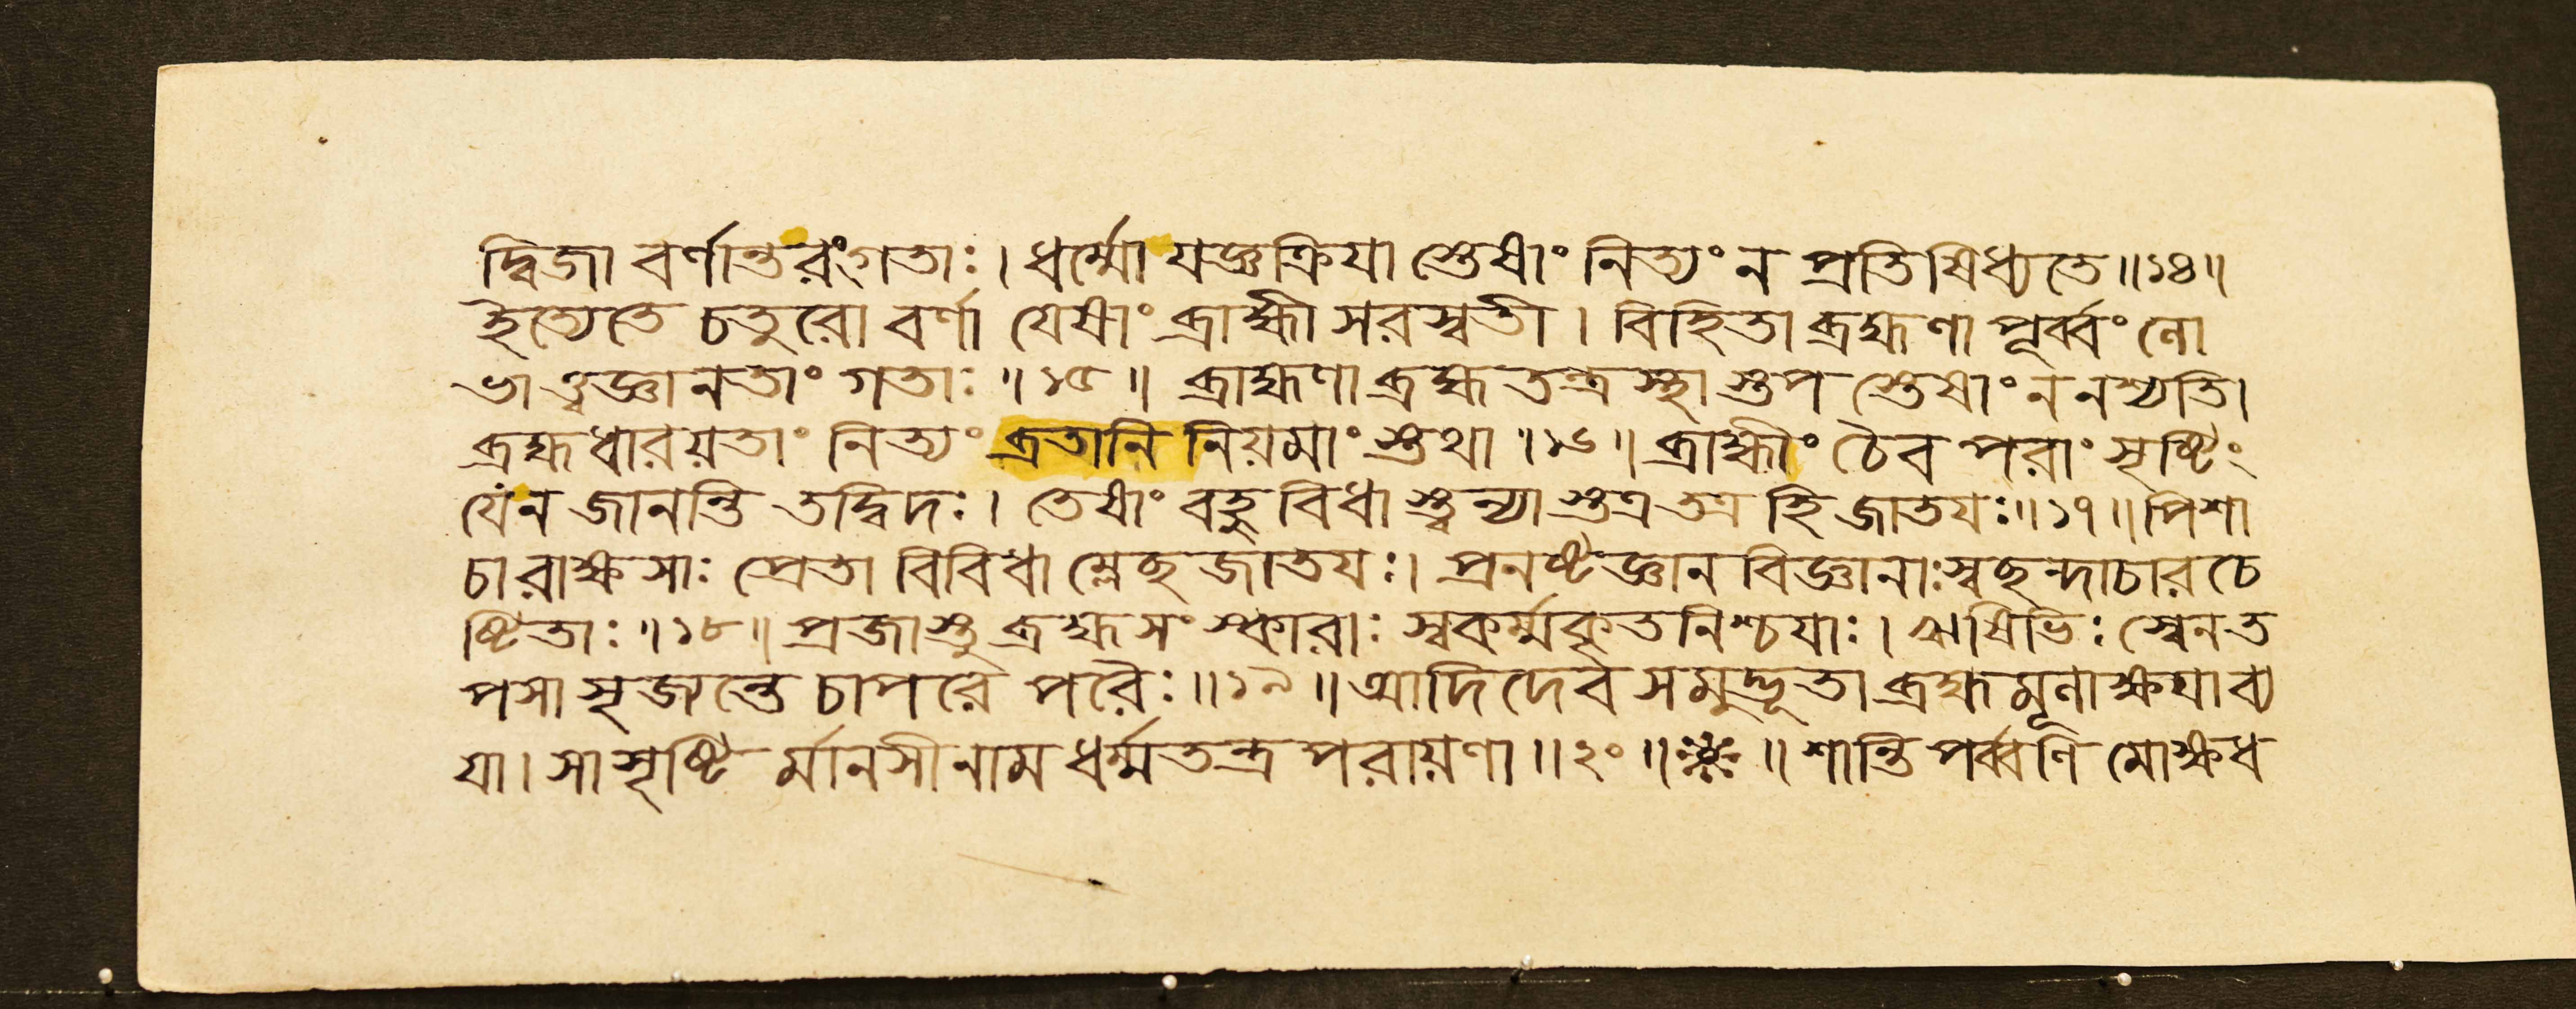 দ্বিজা বর্ণান্তরংগতাঃ। ধর্ম্মো যজ্ঞক্রিযা স্তেষাং নিত্যং ন প্রতিষিধ্যতে॥১৪॥
ইত্যেতে চতুরো বর্ণা যেষাং ব্রাহ্মী সরস্বতী। বিহিতা ব্রহ্মণা পূর্ব্বং লো
ভা ত্ত্বজ্ঞানতাং গতাঃ॥১৫॥ ব্রাহ্মণা ব্রহ্মতন্ত্রস্থা স্তপ স্তেষাং ন নশ্যতি।
ব্রহ্মধারয়তাং নিত্যং ব্রতানি নিয়মাং স্তথা॥১৬॥ ব্রাহ্মীং চৈব পরাং সৃষ্টিং
যে ন জানন্তি তদ্বিদঃ। তেষাং বহুবিধা স্ত্বন্যা স্তত্র তত্র হি জাতযঃ॥১৭॥ পিশা
চা রাক্ষসাঃ প্রেতা বিবিধা ম্লেছজাতযঃ। প্রনষ্টজ্ঞানবিজ্ঞানাঃ স্বছন্দাচারচে
ষ্টিতাঃ॥১৮॥ প্রজাস্তু ব্রহ্মসংস্কারাঃ স্বকর্ম্মকৃতনিশ্চযাঃ। ঋষিভিঃ স্বেন ত
পসা সৃজ্যন্তে চাপরে পরৈঃ॥১৯॥ আদিদেবসমুদ্ভূতা ব্রহ্মমূলাক্ষযাব্য
যা। সা সৃষ্টি র্মানসী নাম ধর্ম্মতন্ত্রপরায়ণা॥২০॥ ॥ শান্তিপর্ব্বণি মোক্ষধ